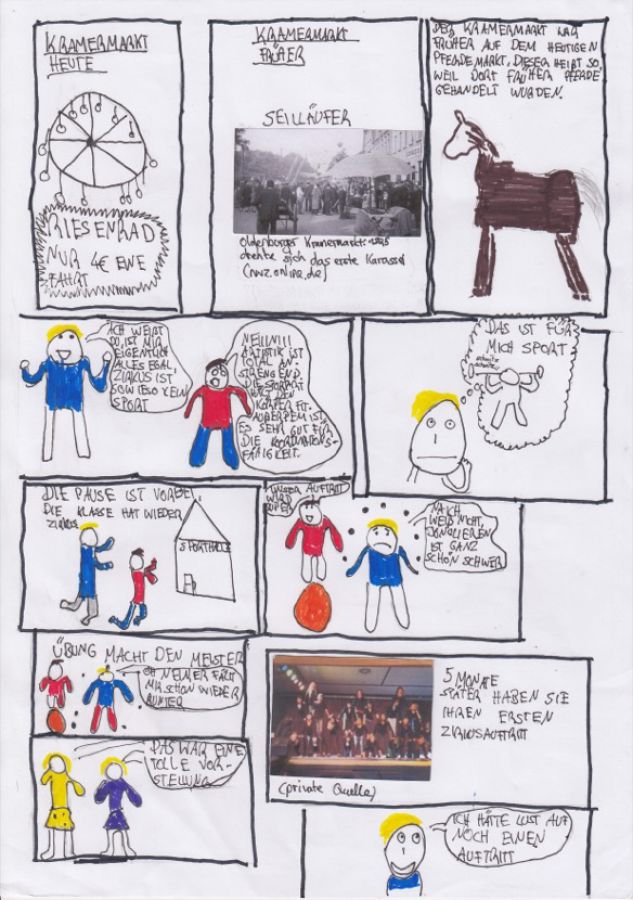 KRAMERMARKT
HEUTE
RIESENRAD
NUR 4€ EINE
FAHRT
KRAMERMARKT
FRÜHER
SEILLÄUFER
Oldenburger Kramermarkt:
drehte sich das erste Karussel
(nwz.online.de)
DER KRAMERMARKT WAR
FRÜHER AUF DEM HEUTIGEN
PFERDEMARKT. DIESER HEIßT SO,
WEIL DORT FRÜHER PFERDE
GEHANDELT WURDEN.
ACH WEIßT
DU, IST MIR
EIGENTLICH
ALLES EGAL,
ZIRKUS IST
SOWIESO KEIN
SPORT
NEIN!!!!
ARTISTIK IST
TOTAL AN-
STRENGEND.
DIE SPORTART
HÄLT DEN
KÖRPER FIT.
AUßERDEM IST
ES SEHR GUT FÜR
DIE KOORDINATIONS-
FÄHIGKEIT.
DAS IST FÜR
MICH SPORT
DIE PAUSE IST VORBEI,
DIE KLASSE HAT WIEDER
ZIRKUS
SPORTHALLE
UNSER AUFTRITT
WIRD
SUPER
NA ICH
WEIß NICHT,
JONGLIEREN
IST GANZ
SCHÖN SCHWER
ÜBUNG MACHT DEN MEISTER
OH NEIN ER FÄLLT
MIR SCHON WIEDER
RUNTER
5 MONATE
SPÄTER HABEN SIE
IHREN ERSTEN
ZIRKUSAUFTRITT
(private Quelle)
DAS WAR EINE
TOLLE VOR-
STELLUNG
ICH HÄTTE LUST AUF
NOCH EINEN
AUFTRITT